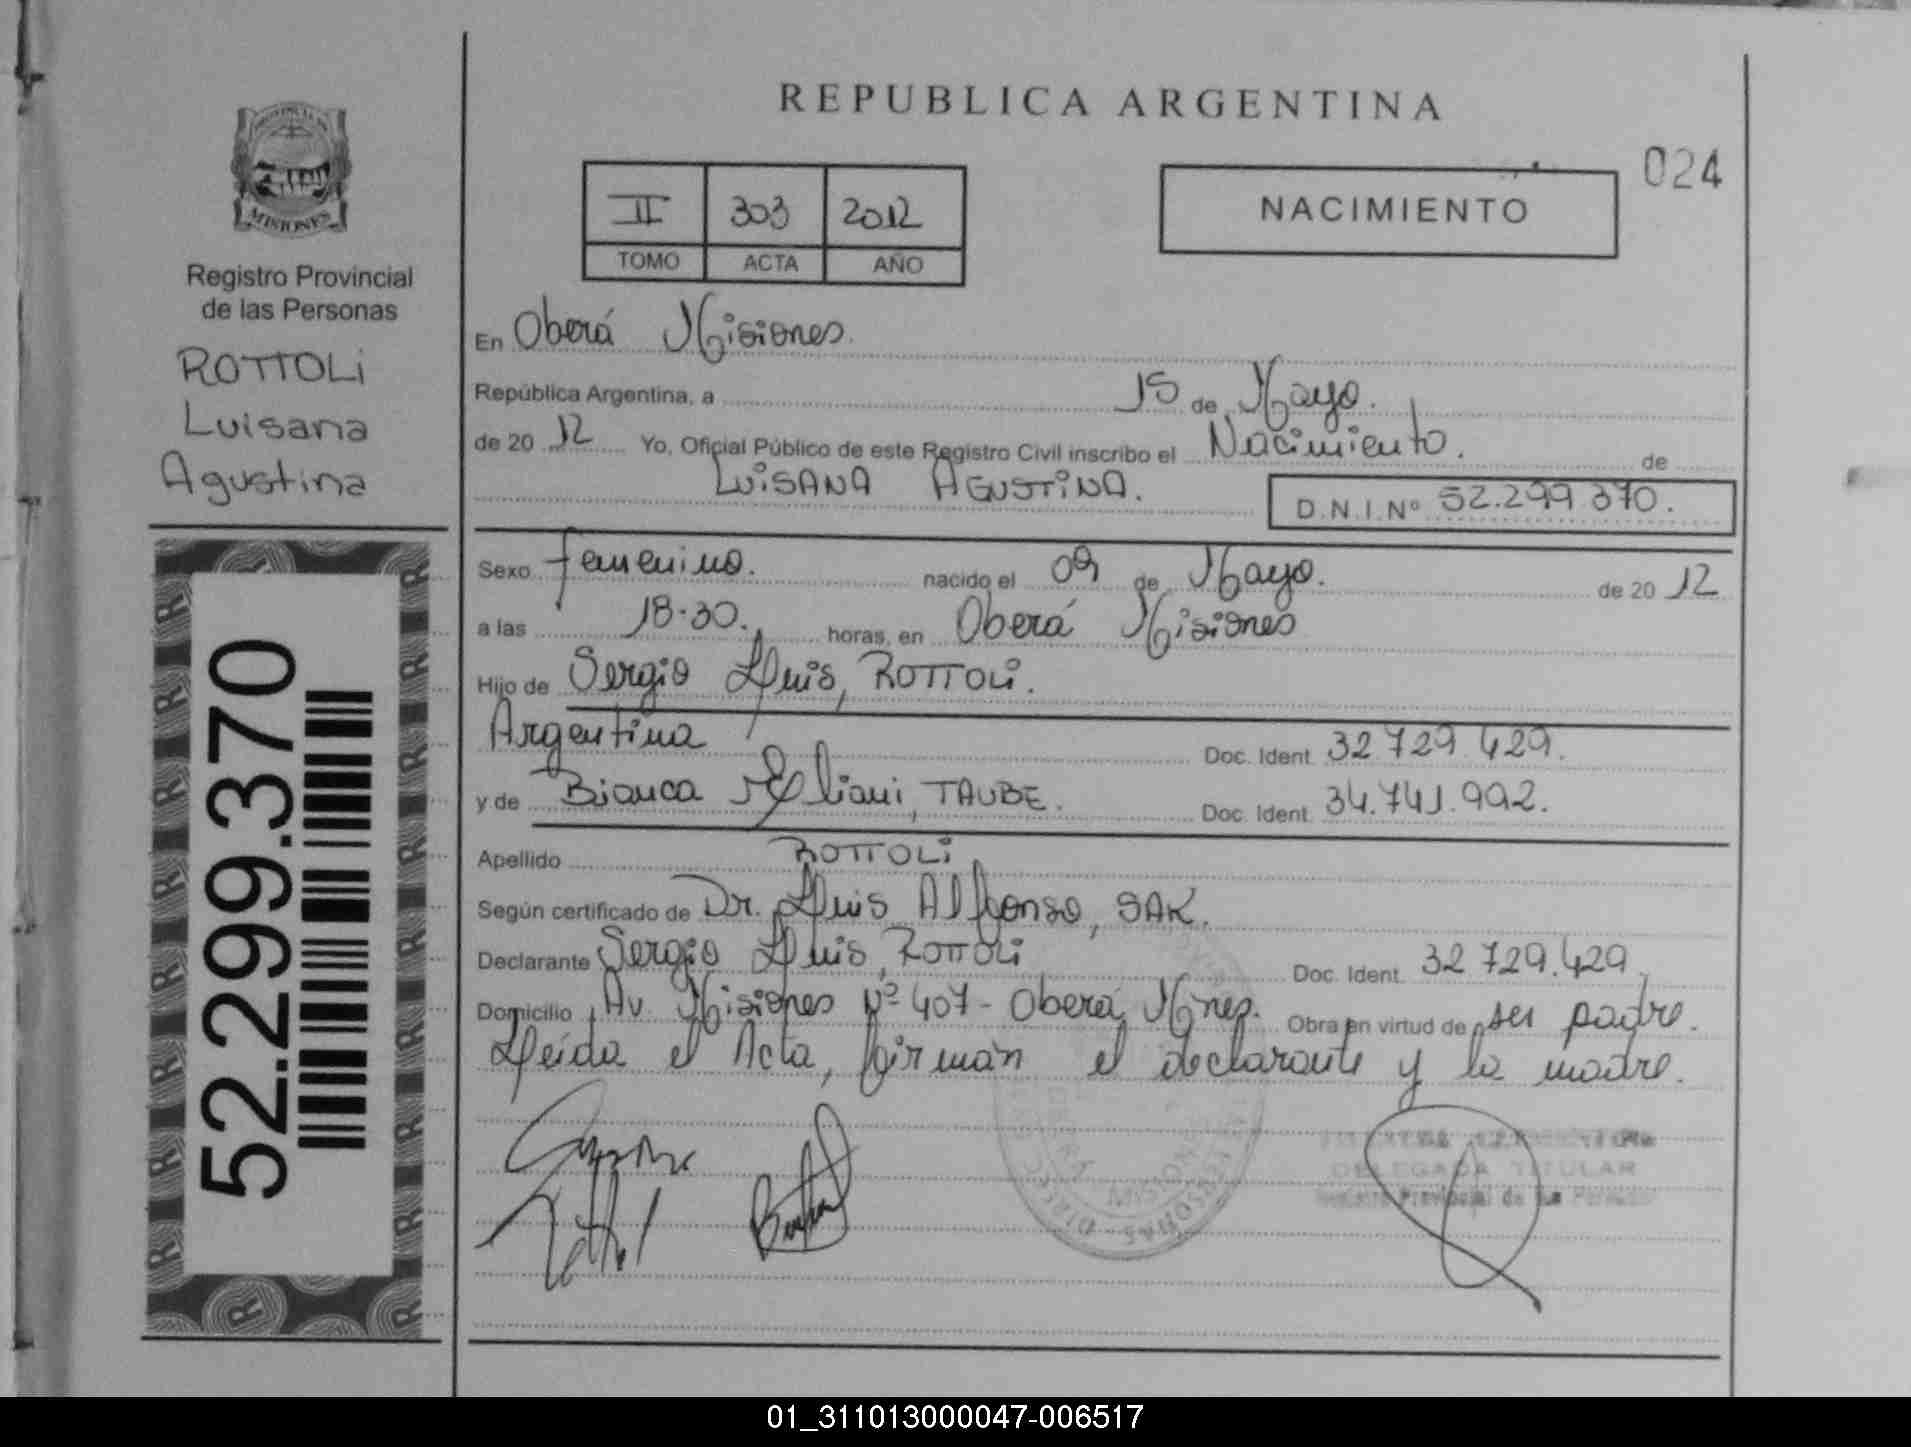 REPUBLICA ARGENTINA
024
PROVINCIA DE
MISIONES
Registro Provincial
de las Personas
ROTTOLI
Luisana
Agustina
52.299.370
II 303 2012
TOMO ACTA AÑO
NACIMIENTO
En Oberá Misiones.
República Argentina, a 15 de Mayo.
de 20 12 Yo, Oficial Público de este Registro Civil inscribo el Nacimiento. de
LUISANA AGUSTINA.
D.N.I.Nº 52.299.370.
Sexo femenino. nacido el 09 de Mayo. de 20 12
a las 18.30. horas, en Oberá Misiones
Hijo de Sergio Luis, ROTTOLI.
Argentina Doc. Ident. 32.729.429.
y de Bianca Eliani, TAUBE. Doc. Ident. 34.741.992.
Apellido ROTTOLI
Según certificado de Dr. Luis Alfonso, SAK.
Declarante Sergio Luis, ROTTOLI Doc. Ident. 32.729.429.
Domicilio Av. Misiones Nº 407 - Oberá, Mnes. Obra en virtud de ser padre.
Leída el Acta, firman el declarante y la madre.
DELEGADA TITULAR
Registro Provincial de las Personas
MISIONES
01_311013000047-006517